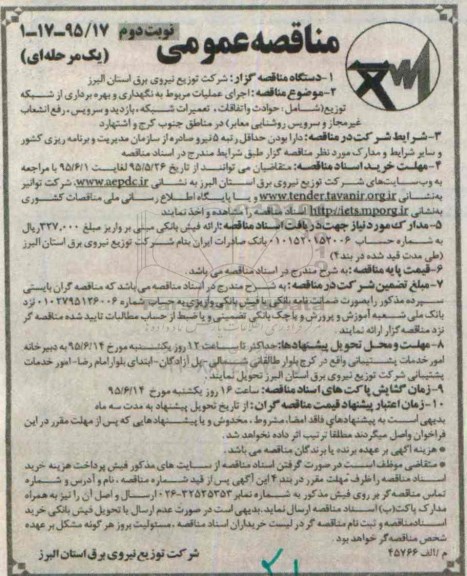 مناقصه عمومی
نوبت دوم
۱-۱۷-۹۵/۱۷
(یک مرحله ای)
۱-دستگاه مناقصه گزار: شرکت توزیع نیروی برق استان البرز
۲-موضوع مناقصه: اجرای عملیات مربوط به نگهداری و بهره برداری از شبکه
توزیع(شامل: حوادث واتفاقات، تعمیرات شبکه، بازدید و سرویس، رفع انشعاب
غیرمجاز و سرویس روشنایی معابر) در مناطق جنوب کرج و اشتهارد
۳-شرایط شرکت در مناقصه: دارا بودن حداقل رتبه ۵ نیرو صادره از سازمان مدیریت و برنامه ریزی کشور
و سایر شرایط و مدارک مورد نظر مناقصه گزار طبق شرایط مندرج در اسناد مناقصه
۴-مهلت خرید اسناد مناقصه: متقاضیان می توانند از تاریخ ۹۵/۵/۲۶ لغایت ۹۵/۶/۱ با مراجعه
به وب سایت های شرکت توزیع نیروی برق استان البرز به نشانی www.aepdc.ir، شرکت توانیر
به نشانی www.tender.tavanir.org.ir و یا پایگاه اطلاع رسانی ملی مناقصات کشوری
به نشانی http://iets.mporg.ir اسناد مناقصه را مشاهده و اخذ نمایند
۵-مدارک مورد نیاز جهت دریافت اسناد مناقصه: ارائه فیش بانکی مبنی بر واریز مبلغ ۳۲۷,۰۰۰ ریال
به شماره حساب ۰۱۰۱۵۲۰۱۵۲۰۰۶ بانک صادرات ایران بنام شرکت توزیع نیروی برق استان البرز
(طی مدت قید شده در بند ۴)
۶-قیمت پایه مناقصه: به شرح مندرج در اسناد مناقصه می باشد.
۷-مبلغ تضمین شرکت در مناقصه: به شرح مندرج در اسناد مناقصه می باشد که مناقصه گران بایستی
سپرده مذکور را بصورت ضمانت نامه بانکی یا فیش بانکی واریزی به حساب شماره ۰۱۰۲۷۹۵۱۲۶۰۰۶ نزد
بانک ملی شعبه آموزش و پرورش و یا چک بانکی تضمینی و یا ضبط از حساب مطالبات تایید شده مناقصه گر
نزد مناقصه گزار ارائه نمایند.
۸-مهلت و محل تحویل پیشنهادها: حداکثر تا ساعت ۱۲ روز یکشنبه مورخ ۹۵/۶/۱۴ به دبیرخانه
امور خدمات پشتیبانی واقع در کرج بلوار طالقانی شمالی-پل آزادگان-ابتدای بلوار امام رضا- امور خدمات
پشتیبانی شرکت توزیع نیروی برق استان البرز تحویل نمایند.
۹-زمان گشایش پاکت های اسناد مناقصه: ساعت ۱۶ روز یکشنبه مورخ ۹۵/۶/۱۴
۱۰-زمان اعتبار پیشنهاد قیمت مناقصه گران: از تاریخ تحویل پیشنهاد به مدت سه ماه
بدیهی است به پیشنهادهای فاقد امضا، مشروط، مخدوش و یا پیشنهادهایی که پس از مهلت مقرر در این
فراخوان واصل میگردند مطلقا ترتیب اثر داده نخواهد شد.
* هزینه آگهی بر عهده برنده یا برندگان مناقصه می باشد.
* متقاضی موظف است در صورت گرفتن اسناد مناقصه از سایت های مذکور فیش پرداخت هزینه خرید
اسناد مناقصه را ظرف مهلت مقرر در بند ۴ این آگهی پس از قید شماره مناقصه، نام و آدرس و شماره
تماس مناقصه گر بر روی فیش مذکور به شماره نمابر ۰۲۶-۳۲۵۲۵۳۵۳ ارسال و اصل آن را نیز به همراه
مدارک پاکت(ب) اسناد مناقصه ارسال نماید. بدیهی است در صورت عدم ارسال یا تحویل فیش بانکی خرید
اسناد مناقصه و ثبت نام مناقصه گر در لیست خریداران اسناد مناقصه، مسئولیت بروز هر گونه مشکل بر عهده
شخص مناقصه گر خواهد بود.
م/الف ۴۵۷۶۶
شرکت توزیع نیروی برق استان البرز